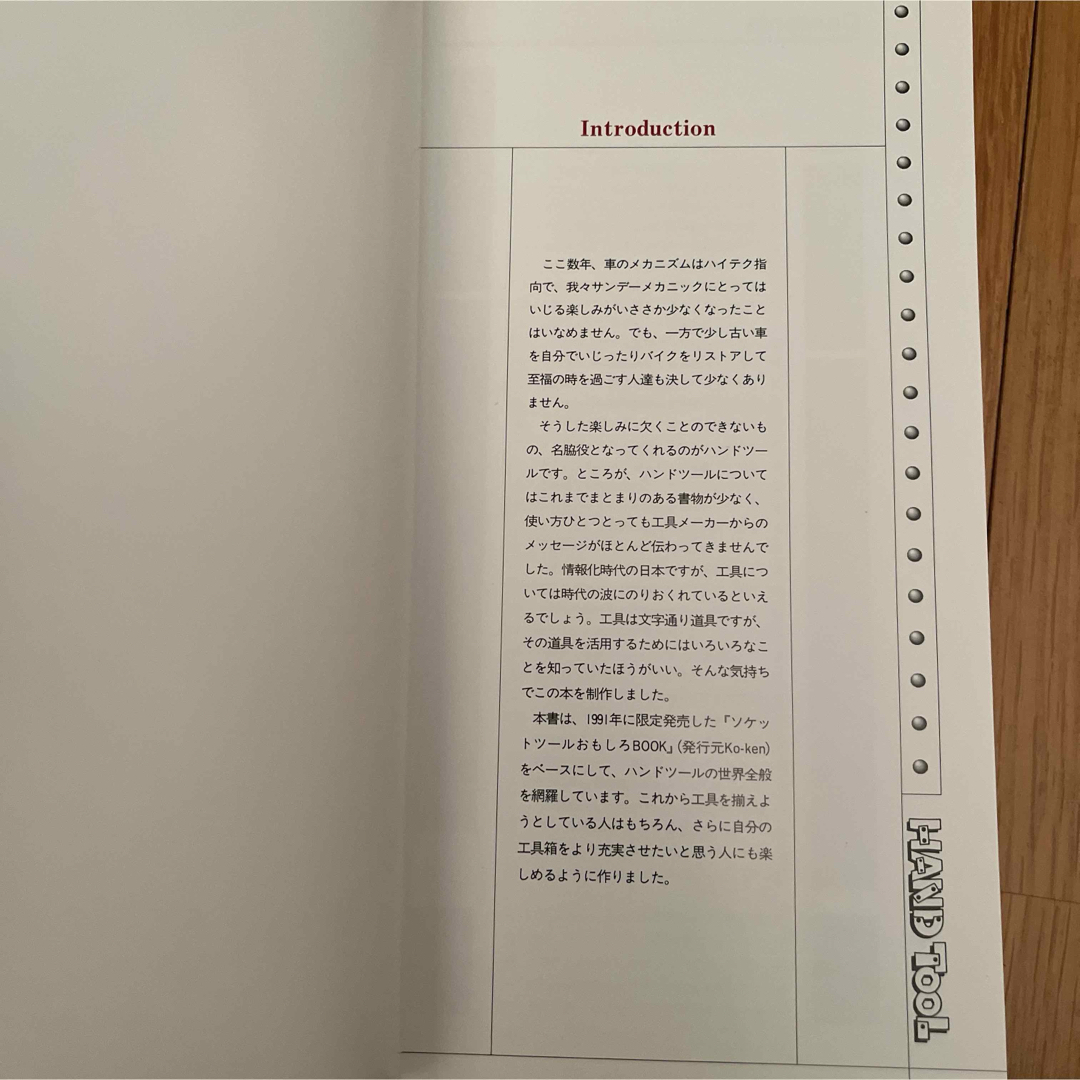 Introduction
ここ数年、車のメカニズムはハイテク指
向で、我々サンデーメカニックにとっては
いじる楽しみがいささか少なくなったこと
はいなめません。でも、一方で少し古い車
を自分でいじったりバイクをリストアして
至福の時を過ごす人達も決して少なくあり
ません。
そうした楽しみに欠くことのできないも
の、名脇役となってくれるのがハンドツー
ルです。ところが、ハンドツールについて
はこれまでまとまりのある書物が少なく、
使い方ひとつとっても工具メーカーからの
メッセージがほとんど伝わってきませんで
した。情報化時代の日本ですが、工具につ
いては時代の波にのりおくれているといえ
るでしょう。工具は文字通り道具ですが、
その道具を活用するためにはいろいろなこ
とを知っていたほうがいい。そんな気持ち
でこの本を制作しました。
本書は、1991年に限定発売した『ソケッ
トツールおもしろBOOK』(発行元Ko-ken)
をベースにして、ハンドツールの世界全般
を網羅しています。これから工具を揃えよ
うとしている人はもちろん、さらに自分の
工具箱をより充実させたいと思う人にも楽
しめるように作りました。
HAND TOOL